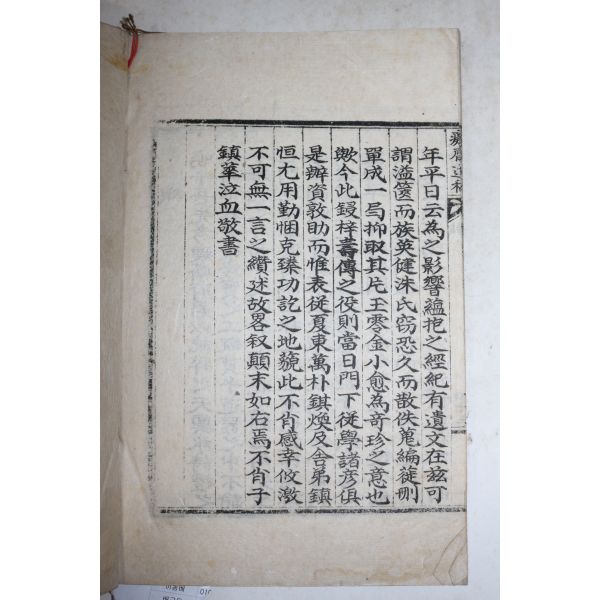 年平日云為之影響蘊抱之經紀有遺文在玆可
謂溢篋而族英健洙氏窃恐久而散佚蒐編蓰刪
單成一局抑取其片玉零金小愈為奇珍之意也
歟今此鋟梓壽傳之役則當日門下從學諸彦俱
是辦資敦助而惟表從夏東萬朴錤煥及舍弟鎮
恒尤用勤悃克臻功訖之地䫉此不肖感幸攸激
不可無一言之纘述故畧叙顛末如右焉不肖子
鎮華泣血敬書